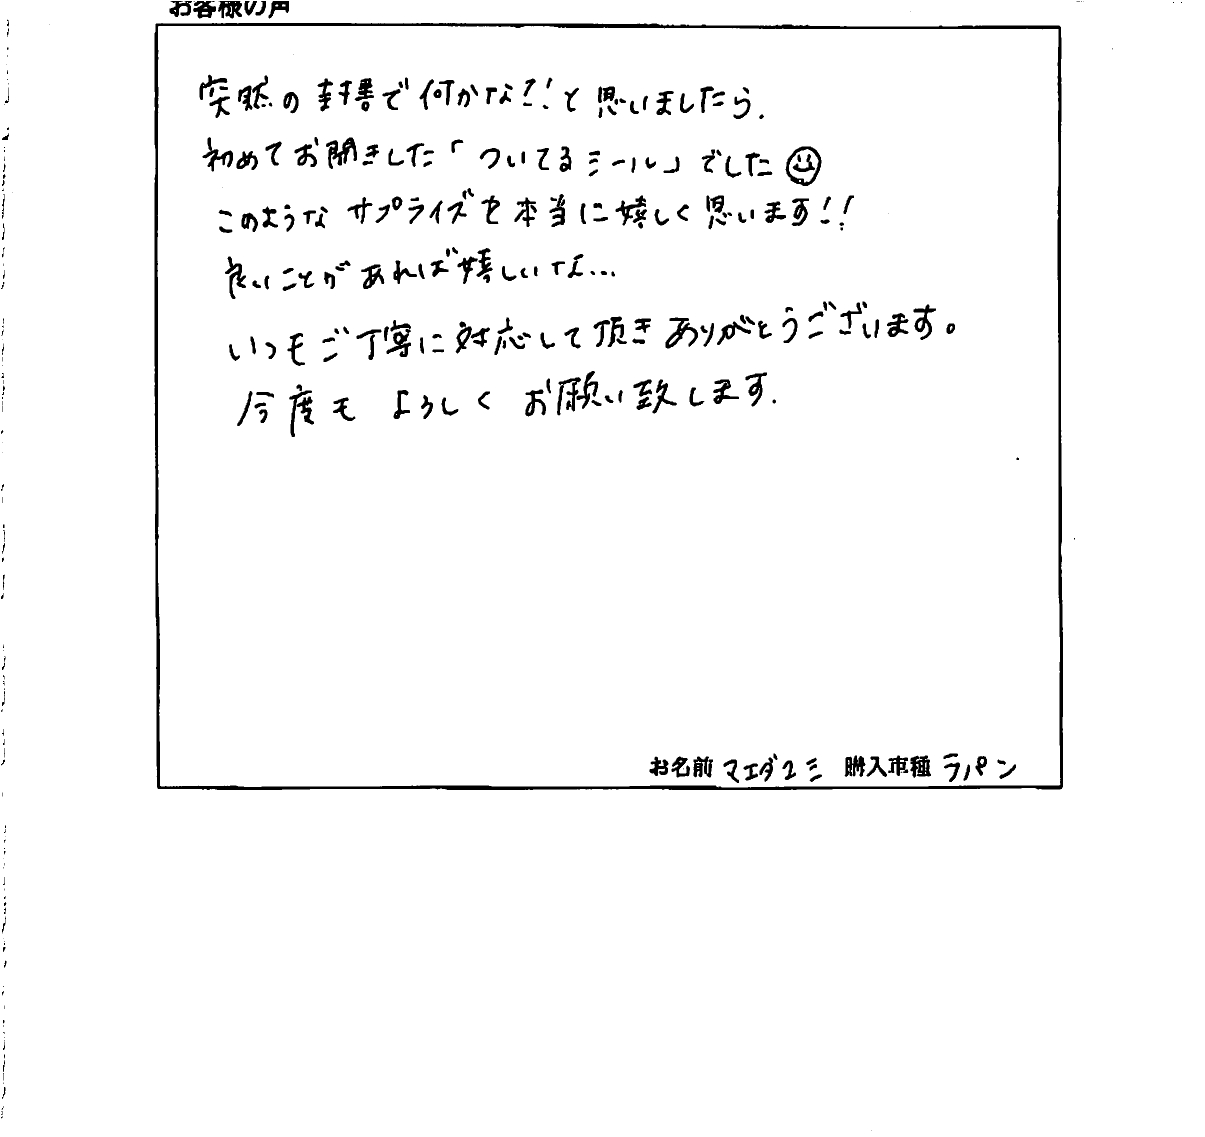 お客様の声
突然の封書で何かな?!と思いましたら.
初めてお聞きした「ついてるシール」でした
このようなサプライズを本当に嬉しく思います!!
良いことがあれば嬉しいな...
いつもご丁寧に対応して頂きありがとうございます。
今度もよろしくお願い致します.
お名前 マエダユミ 購入車種 ラパン